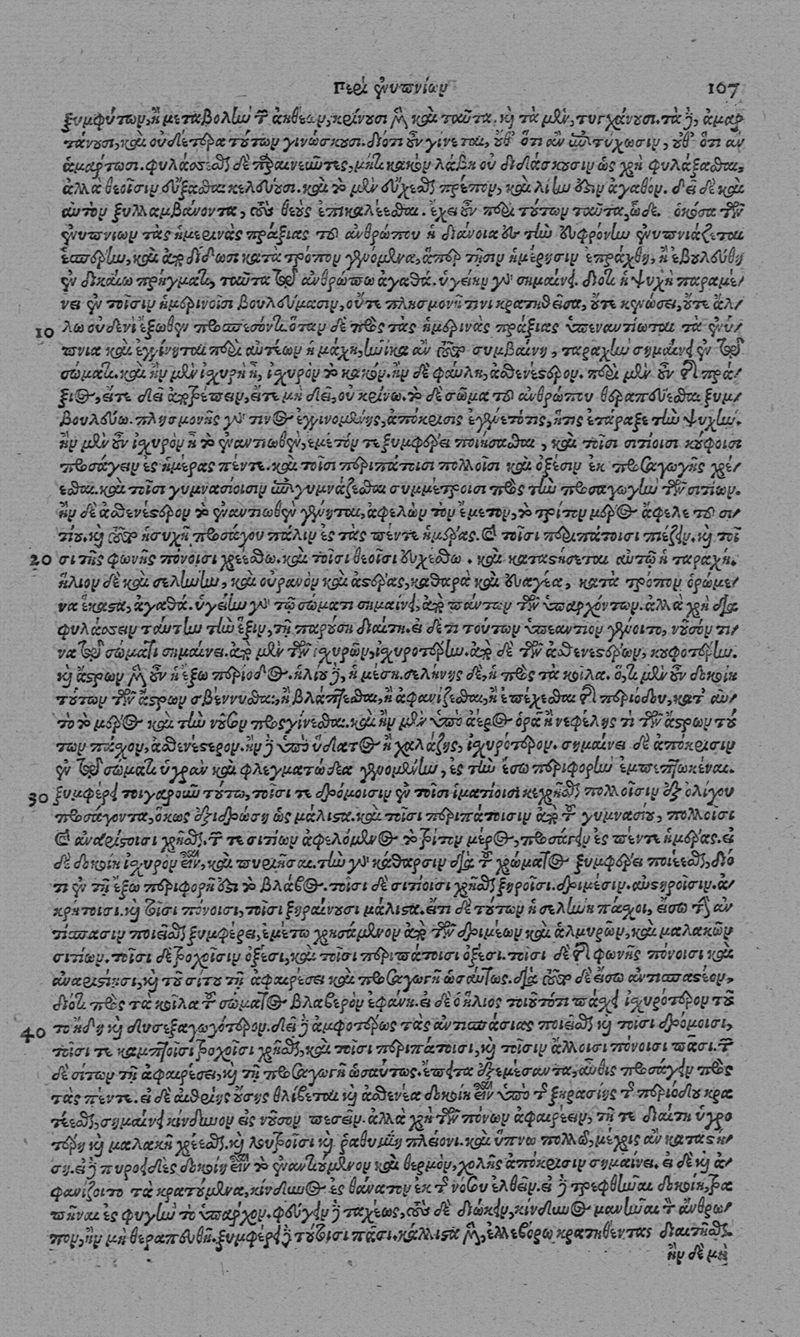 Περὶ ἐνυπνίων 107
ξυμφύτων, ἢ μεταβολὴν τῶν ἀηθέων, κρίνουσι δὲ καὶ ταῦτα. καὶ τὰ μὲν, τυγχάνουσι. τὰ δὲ, ἁμαρ
τάνουσι, καὶ οὐδέτερα τούτων γινώσκουσι. διότι οὖν γίνεται, οὔθ' ὅτι ἂν ἐπιτύχωσιν, οὔθ' ὅτι ἂν
ἁμάρτωσι. φυλάσσεσθαι δὲ παραινεῦντες, μήτι κακὸν λάβῃ οὐ διδάσκουσιν ὡς χρὴ φυλάξασθαι,
ἀλλὰ θεοῖσιν εὔξασθαι κελεύουσι. καὶ τὸ μὲν εὔχεσθαι πρέπον, καὶ λίην ἐστὶν ἀγαθον. δεῖ δὲ καὶ
αὐτὸν ξυλλαμβάνοντα, τοὺς θεοὺς ἐπικαλέεσθαι. ἔχει οὖν περὶ τούτων ταῦτα, ὧδε. ὁκόσα τῶν
ἐνυπνίων τὰς ἡμερινὰς πράξιας τοῦ ἀνθρώπου ἡ διάνοια ἐς τὴν εὐφρόνην ἐνυπνιάζεται
ἑσπέρην, καὶ ἀποδίδωσι κατὰ τρόπον γενόμενα, ἅπερ τῇσιν ἡμέρῃσιν ἐπράχθη, ἢ ἐβουλεύθη
ἐν δικαίῳ πρήγματι, ταῦτα τῷ ἀνθρώπῳ ἀγαθά. ὑγείην γὰρ σημαίνει. διότι ἡ ψυχὴ παραμέ-
νει ἐν τοῖσιν ἡμερινοῖσι βουλεύμασιν, οὔτε πλησμονῇ τινι κρατηθεῖσα, οὔτε κενώσει, οὔτε ἄλ-
10 λῳ οὐδενὶ ἔξωθεν προσπεσόντι. ὅταν δὲ πρὸς τὰς ἡμερινὰς πράξιας ὑπεναντιῶται τὰ ἐνύ-
πνια καὶ ἐγγίνηται περὶ αὐτέων ἡ μάχη, ἡνίκα ἂν τοῦτο συμβαίνῃ, ταραχὴν σημαίνει ἐν τῷ
σώματι. καὶ ἢν μὲν ἰσχυρὴ ᾖ, ἰσχυρὸν τὸ κακόν. ἢν δὲ φαύλη, ἀσθενέστερον. περὶ μὲν οὖν τῆς πρά-
ξιος, εἴτε δεῖ ἀποτρέπειν, εἴτε μὴ δεῖ, οὐ κρίνω. τὸ δὲ σῶμα τοῦ ἀνθρώπου θεραπεύεσθαι ξυμ-
βουλεύω. πλησμονῆς γὰρ τινὸς ἐγγινομένης, ἀπόκρισις ἐγγενομένη τις, ἐτάραξε τὴν ψυχήν.
ἢν μὲν οὖν ἰσχυρὸν ᾖ τὸ ἐναντιωθὲν, ἔμετόν τε ξυμφέρει ποιήσασθαι, καὶ τοῖσι σιτίοισι κούφοισι
προσάγειν ἐς ἡμέρας πέντε. καὶ τοῖσι περιπάτοισι πολλοῖσι καὶ ὀξέσιν ἐκ προσαγωγῆς χρέ-
εσθαι. καὶ τοῖσι γυμνασίοισιν ἐπιγυμνάζεσθαι συμμέτροισι πρὸς τὴν προσαγωγὴν τῶν σιτίων.
ἢν δὲ ἀσθενέστερον τὸ ἐναντιωθὲν γένηται, ἀφελὼν τὸν ἔμετον, τὸ τρίτον μέρος ἄφελε τοῦ σι-
τίου. καὶ τοῦτο ἡσυχῇ προσάγου πάλιν ἐς τὰς πέντε ἡμέρας. καὶ τοῖσι περιπάτοισι πιέζειν. καὶ τοῖ
20 σι τῆς φωνῆς πόνοισι χρεέσθω. καὶ τοῖσι θεοῖσι εὐχέσθω. καὶ καταστήσεται αὐτῷ ἡ ταραχή.
ἥλιον δὲ καὶ σελήνην, καὶ οὐρανὸν καὶ ἀστέρας, καθαρὰ καὶ εὐαγέα, κατὰ τρόπον ὁρώμε-
να ἕκαστα, ἀγαθά. ὑγείην γὰρ τῷ σώματι σημαίνει, ἀπὸ πάντων τῶν ὑπαρχόντων. ἀλλὰ χρὴ δια
φυλάσσειν ταύτην τὴν ἕξιν, τῇ παρούσῃ διαίτῃ. εἰ δέ τι τούτων ὑπεναντίον γένοιτο, νοῦσόν τι-
να τῷ σώματι σημαίνει. ἀπὸ μὲν τῶν ἰσχυρῶν, ἰσχυροτέρην. ἀπὸ δὲ τῶν ἀσθενεστέρων, κουφοτέρην.
καὶ ἄστρων μὲν οὖν ἡ ἔξω περίοδος. ἡλίου δὲ, ἡ μέση. σελήνης δὲ, ἡ πρὸς τὰ κοῖλα. ὅ,τι μὲν οὖν δοκοίη
τούτων τῶν ἄστρων σβέννυσθαι, ἢ βλάπτεσθαι, ἢ ἀφανίζεσθαι, ἢ ἐπέχεσθαι τῆς περιόδου, κατ' αὐ-
τὸ τὸ μέρος καὶ τὴν νοῦσον προσγίνεσθαι. καὶ ἢν μὲν ὑπὸ ἀέρος ὁρᾷ ἢ νεφέλης τὶ τῶν ἄστρων τού
των πάσχον, ἀσθενέστερον. ἢν δὲ ὑπὸ ὕδατος ἢ χαλάζης, ἰσχυρότερον. σημαίνει δὲ ἀπόκρισιν
ἐν τῷ σώματι ὑγρὰν καὶ φλεγματώδεα γενομένην, ἐς τὴν ἔσω περιφορὴν ἐμπεπτωκέναι.
30 ξυμφέρει τοιγαροῦν τούτῳ, τοῖσι τε δρόμοισιν ἐν τοῖσι ἱματίοισι κεχρῆσθαι πολλοῖσιν ἐξ ὀλίγου
προσάγοντα, ὅκως ἐξιδρώσῃ ὡς μάλιστα. καὶ τοῖσι περιπάτοισιν ἀπὸ τοῦ γυμνασίου, πολλοῖσι
καὶ ἀναρίστοισι χρῆσθαι. τῶν τε σιτίων ἀφελόμενος τὸ τρίτον μέρος, προσάγειν ἐς πέντε ἡμέρας. εἰ
δὲ δοκοίη ἰσχυρὸν εἶναι, καὶ πυρίησαι. τὴν γὰρ κάθαρσιν διὰ τοῦ χρωτὸς ξυμφέρει ποιέεσθαι, διό
τι ἐν τῇ ἔξω περιφορῇ ἐστι τὸ βλάβος. τοῖσι δὲ σιτίοισι χρῆσθαι ξηροῖσι. δριμέσιν. αὐστηροῖσιν. ἀ-
κρήτοισι. καὶ τοῖσι πόνοισι, τοῖσι ξηραίνουσι μάλιστα. ἔτι δὲ τούτων ἡ σελήνη πάσχοι, ἔσω τὴν ἀν
τίσπασιν ποιέεσθαι ξυμφέρει, ἐμέτῳ χρησάμενον ἀπὸ τῶν δριμέων καὶ ἁλμυρῶν, καὶ μαλακῶν
σιτίων. τοῖσι δὲ τροχοῖσιν ὀξέσι, καὶ τοῖσι περιπάτοισι ὀξέσι. τοῖσι δὲ τῆς φωνῆς πόνοισι καὶ
ἀναριστίῃσι, καὶ τοῦ σίτου τῇ ἀφαιρέσει καὶ προσαγωγῇ ὡσαύτως. διὰ τοῦτο δὲ ἔσω ἀντισπαστέον,
διότι πρὸς τὰ κοῖλα τοῦ σώματος βλαβερὸν ἐφάνη. εἰ δὲ ὁ ἥλιος τοιοῦτό τι πάσχῃ ἰσχυρότερον τοῦ
40 το ἤδη καὶ δυσεξαγωγότερον. δεῖ δὲ ἀμφοτέρως τὰς ἀντισπάσιας ποιέεσθαι καὶ τοῖσι δρόμοισι,
τοῖσι τε καμπτοῖσι τροχοῖσι χρῆσθαι, καὶ τοῖσι περιπάτοισι, καὶ τοῖσιν ἄλλοισι πόνοισι πᾶσι. τῶν
δὲ σίτων τῇ ἀφαιρέσει, καὶ τῇ προσαγωγῇ ὡσαύτως. ἔπειτα ἐξεμέσαντα, αὖθις προσάγειν πρὸς
τὰς πέντε. εἰ δὲ αἰθρίης οὔσης θλίβεται καὶ ἀσθενέα δοκοίη εἶναι ὑπὸ τῆς ξηρασίης τῆς περιόδου κρα
τέεσθαι, σημαίνει κίνδυνον εἰς νοῦσον πεσεῖν. ἀλλὰ χρὴ τῶν πόνων ἀφαιρέειν, τῇ τε διαίτῃ ὑγρο
τέρῃ καὶ μαλακῇ χρέεσθαι. καὶ λουτροῖσι καὶ ῥαθυμίῃ πλέονι. καὶ ὕπνῳ πολλῷ, μέχρις ἂν καταστή-
σῃ. εἰ δὲ πυροειδὲς δοκοίη εἶναι τὸ ἐναντιούμενον καὶ θερμὸν, χολῆς ἀπόκρισιν σημαίνει. εἰ δὲ καὶ ἀ-
φανίζοιτο τὰ κρατούμενα, κίνδυνος ἐς θάνατον ἐκ τῆς νούσου ἐλθεῖν. εἰ δὲ τρεφθῆναι δοκοίη, τρα
πῆναι ἐς φυγὴν τὸ ὑπάρχον, φεύγειν δὲ ταχέως, τοὺς δὲ διώκειν, κίνδυνος μανῆναι τὸν ἄνθρω-
πον, ἢν μὴ θεραπευθῇ. ξυμφέρει δὲ τούτοισι πᾶσι. κάλλιστα μὲν, ἐλλεβόρῳ κρατηθέντας διαιτῆσθαι.
ἢν δὲ μὴ